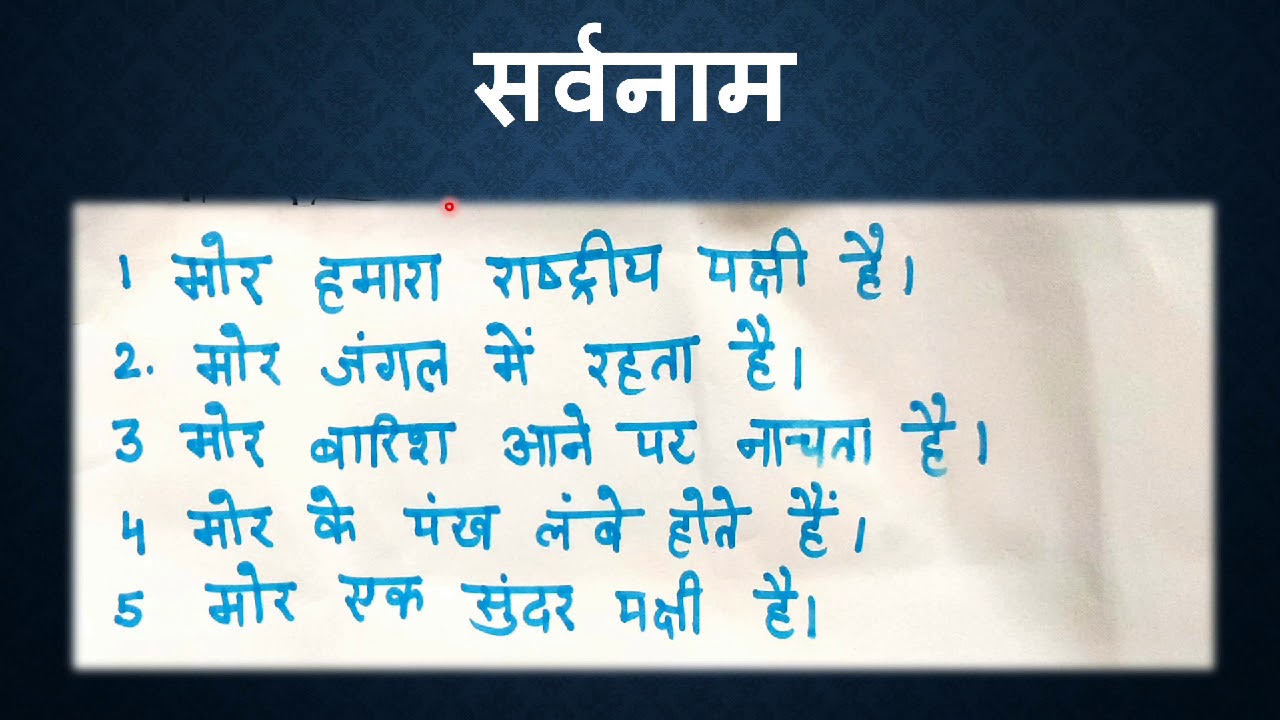 सर्वनाम
1 मोर हमारा राष्ट्रीय पक्षी है।
2. मोर जंगल में रहता है।
3 मोर बारिश आने पर नाचता है।
4 मोर के पंख लंबे होते हैं।
5 मोर एक सुंदर पक्षी है।